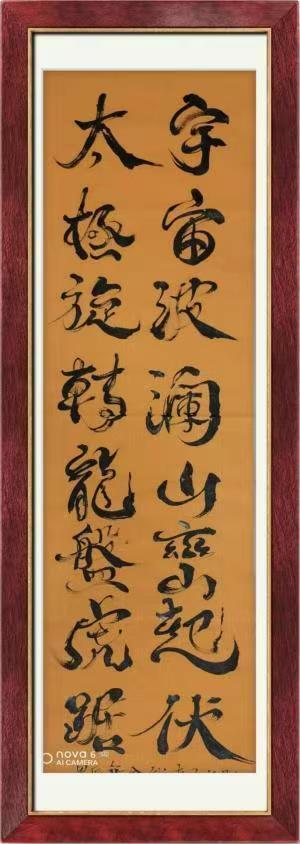 宇宙波澜山峦起伏
太极旋转龍盤虎踞
nova 6
AI CAMERA